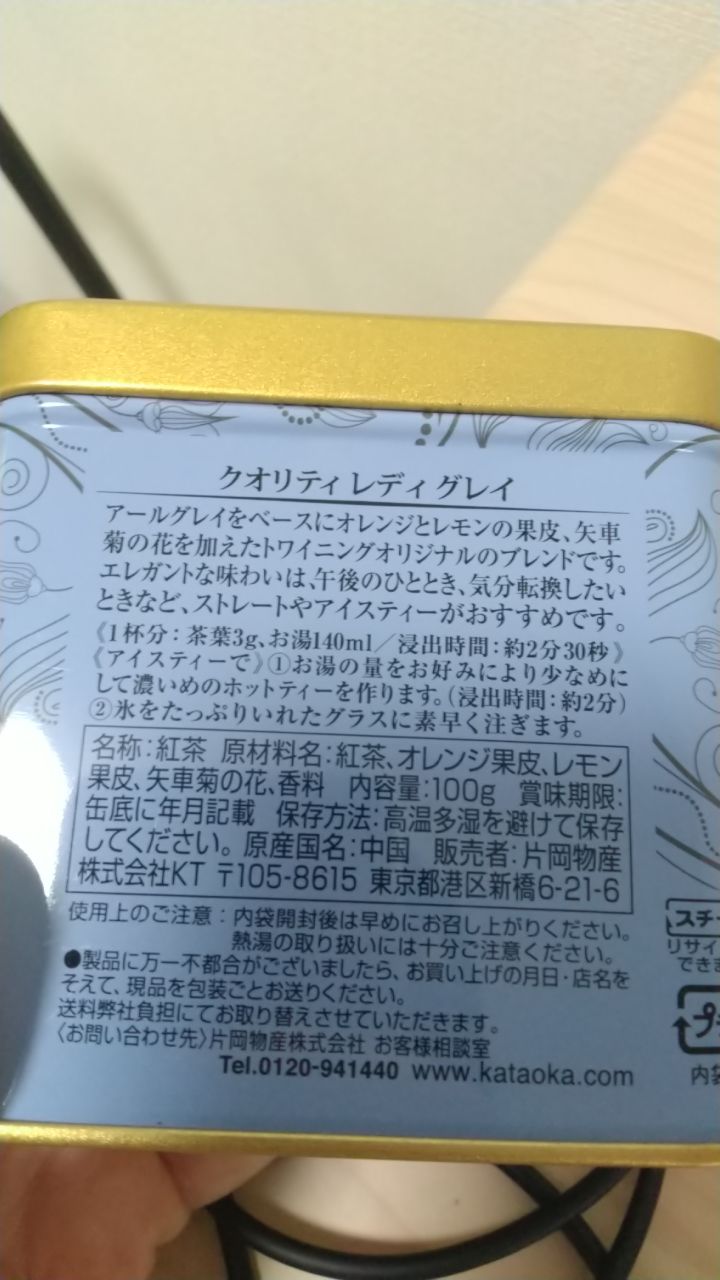 クオリティ レディ グレイ
アールグレイをベースにオレンジとレモンの果皮、矢車
菊の花を加えたトワイニングオリジナルのブレンドです。
エレガントな味わいは、午後のひととき、気分転換したい
ときなど、ストレートやアイスティーがおすすめです。
《1杯分：茶葉3g、お湯140ml／浸出時間：約2分30秒》
《アイスティーで》①お湯の量をお好みにより少なめに
して濃いめのホットティーを作ります。（浸出時間：約2分）
②氷をたっぷりいれたグラスに素早く注ぎます。
名称：紅茶 原材料名：紅茶、オレンジ果皮、レモン
果皮、矢車菊の花、香料 内容量：100g 賞味期限：
缶底に年月記載 保存方法：高温多湿を避けて保存
してください。 原産国名：中国 販売者：片岡物産
株式会社KT 〒105-8615 東京都港区新橋6-21-6
使用上のご注意：内袋開封後は早めにお召し上がりください。
熱湯の取り扱いには十分ご注意ください。
●製品に万一不都合がございましたら、お買い上げの月日・店名を
そえて、現品を包装ごとお送りください。
送料弊社負担にてお取り替えさせていただきます。
〈お問い合わせ先〉片岡物産株式会社 お客様相談室
Tel.0120-941440 www.kataoka.com
スチ
リサイ
でき
プ
内袋